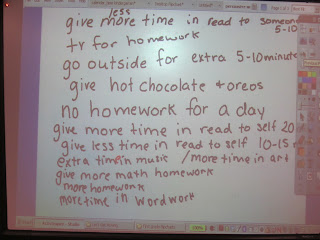 less
give more time in read to someone
5-10
tv for homework
go outside for extra 5-10 minute
give hot chocolate + oreos
no homework for a day
give more time in read to self 20
give less time in read to self 10-15
extra time in music / more time in art
give more math homework
more homework
more time in word work